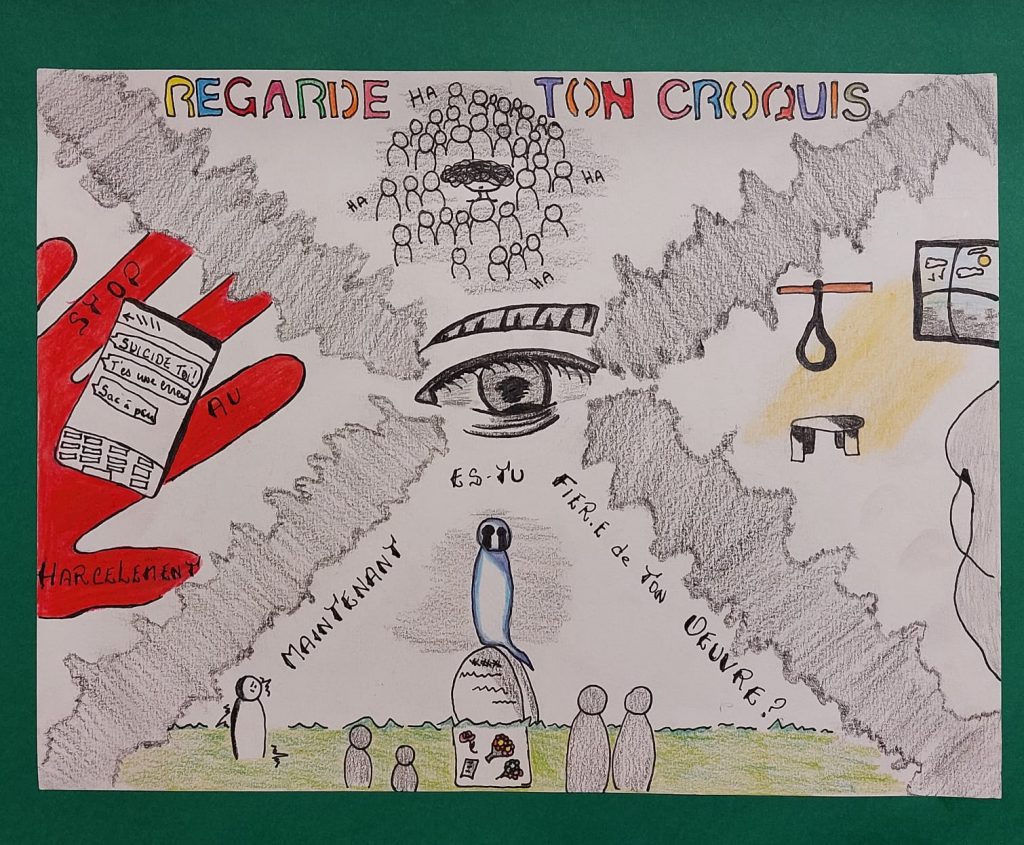 REGARDE TON CROQUIS
HA
HA
HA
HA
STOP
AU
HARCELEMENT
SUICIDE TOI!
T'es une erreur
Sac à pu
ES-TU
FIER.E de TON
OEUVRE?
MAINTENANT